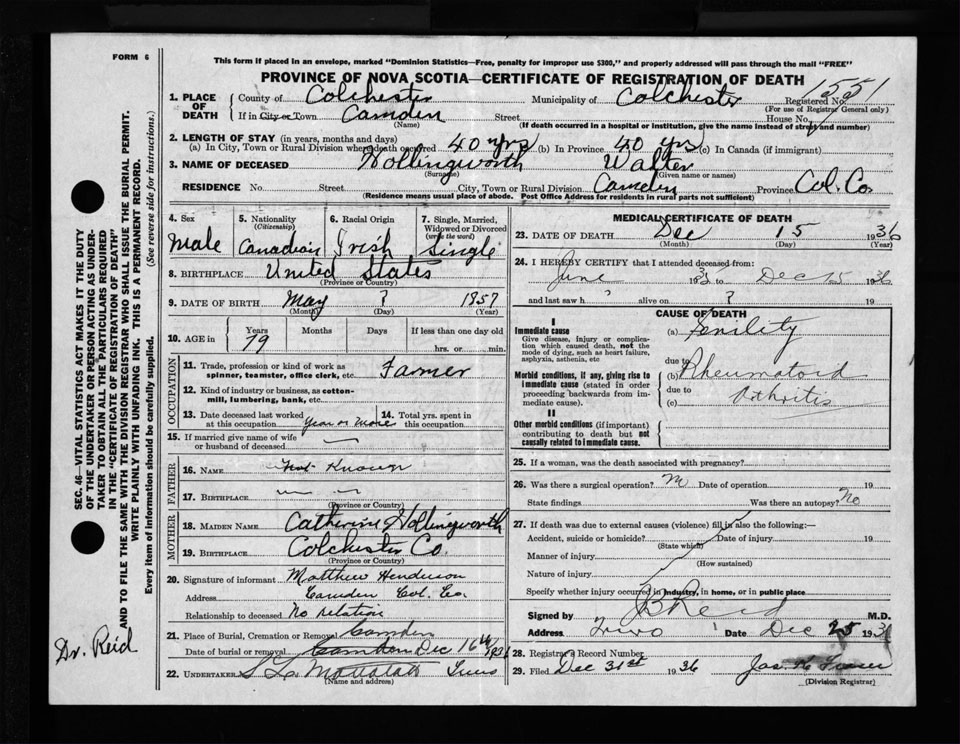 FORM 6
This form if placed in an envelope, marked "Dominion Statistics—Free, penalty for improper use $300," and properly addressed will pass through the mail "FREE"
PROVINCE OF NOVA SCOTIA—CERTIFICATE OF REGISTRATION OF DEATH
1551
1. PLACE OF DEATH County of Colchester Municipality of Colchester Registered No.
(For use of Registrar General only)
If in City or Town Camden Street House No.
(Name) (If death occurred in a hospital or institution, give the name instead of street and number)
2. LENGTH OF STAY (in years, months and days)
(a) In City, Town or Rural Division where death occurred 40 yrs (b) In Province 40 yrs (c) In Canada (if immigrant)
3. NAME OF DECEASED Hollingworth Walter
(Surname) (Given name or names)
RESIDENCE No. Street City, Town or Rural Division Camden Province Col. Co.
(Residence means usual place of abode. Post Office Address for residents in rural parts not sufficient)
4. Sex Male
5. Nationality (Citizenship) Canadian
6. Racial Origin Irish
7. Single, Married, Widowed or Divorced (write the word) Single
8. BIRTHPLACE United States
(Province or Country)
9. DATE OF BIRTH May ? 1857
(Month) (Day) (Year)
10. AGE in Years Months Days If less than one day old
79 hrs. or min.
OCCUPATION
11. Trade, profession or kind of work as spinner, teamster, office clerk, etc. Farmer
12. Kind of industry or business, as cotton-mill, lumbering, bank, etc.
13. Date deceased last worked at this occupation Year or More
14. Total yrs. spent in this occupation
15. If married give name of wife or husband of deceased
FATHER
16. NAME Not Known
17. BIRTHPLACE
(Province or Country)
MOTHER
18. MAIDEN NAME Catherine Hollingworth
19. BIRTHPLACE Colchester Co.
(Province or Country)
20. Signature of informant Matthew Henderson
Address Camden Col. Co.
Relationship to deceased No relation
21. Place of Burial, Cremation or Removal Camden
Date of burial or removal Camden Dec 16th 1936
22. UNDERTAKER
(Name and address)
MEDICAL CERTIFICATE OF DEATH
23. DATE OF DEATH Dec 15 1936
(Month) (Day) (Year)
24. I HEREBY CERTIFY that I attended deceased from:
June 193 to Dec 15 1936
and last saw h ? alive on ? 19
CAUSE OF DEATH
I
Immediate cause
Give disease, injury or complication which caused death, not the mode of dying, such as heart failure, asphyxia, asthenia, etc
(a) Senility
due to
Morbid conditions, if any, giving rise to immediate cause (stated in order proceeding backwards from immediate cause).
(b) Rheumatoid
due to
(c) Arthritis
II
Other morbid conditions (if important) contributing to death but not causally related to immediate cause.
25. If a woman, was the death associated with pregnancy?
26. Was there a surgical operation? Date of operation 19
State findings Was there an autopsy? No
27. If death was due to external causes (violence) fill in also the following:—
Accident, suicide or homicide? Date of injury 19
(State which)
Manner of injury
(How sustained)
Nature of injury
Specify whether injury occurred in industry, in home, or in public place
Signed by Reid M.D.
Address Truro Date Dec 25 193
28. Registrar's Record Number
29. Filed Dec 31st 1936 Jas
(Division Registrar)
SEC. 46—VITAL STATISTICS ACT MAKES IT THE DUTY
OF THE UNDERTAKER OR PERSON ACTING AS UNDER-
TAKER TO OBTAIN ALL THE PARTICULARS REQUIRED
IN THE "CERTIFICATE OF REGISTRATION OF DEATH"
AND TO FILE THE SAME WITH THE DIVISION REGISTRAR WHO SHALL ISSUE THE BURIAL PERMIT.
WRITE PLAINLY WITH UNFADING INK. THIS IS A PERMANENT RECORD.
Every item of information should be carefully supplied. (See reverse side for instructions.)
Dr. Reid